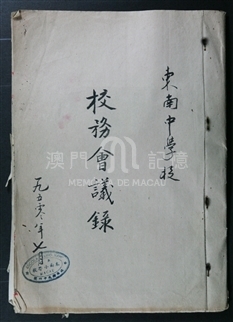 東南中學校
校務會議錄
一九五六年七月
澳門記憶
MEMÓRIA DE MACAU